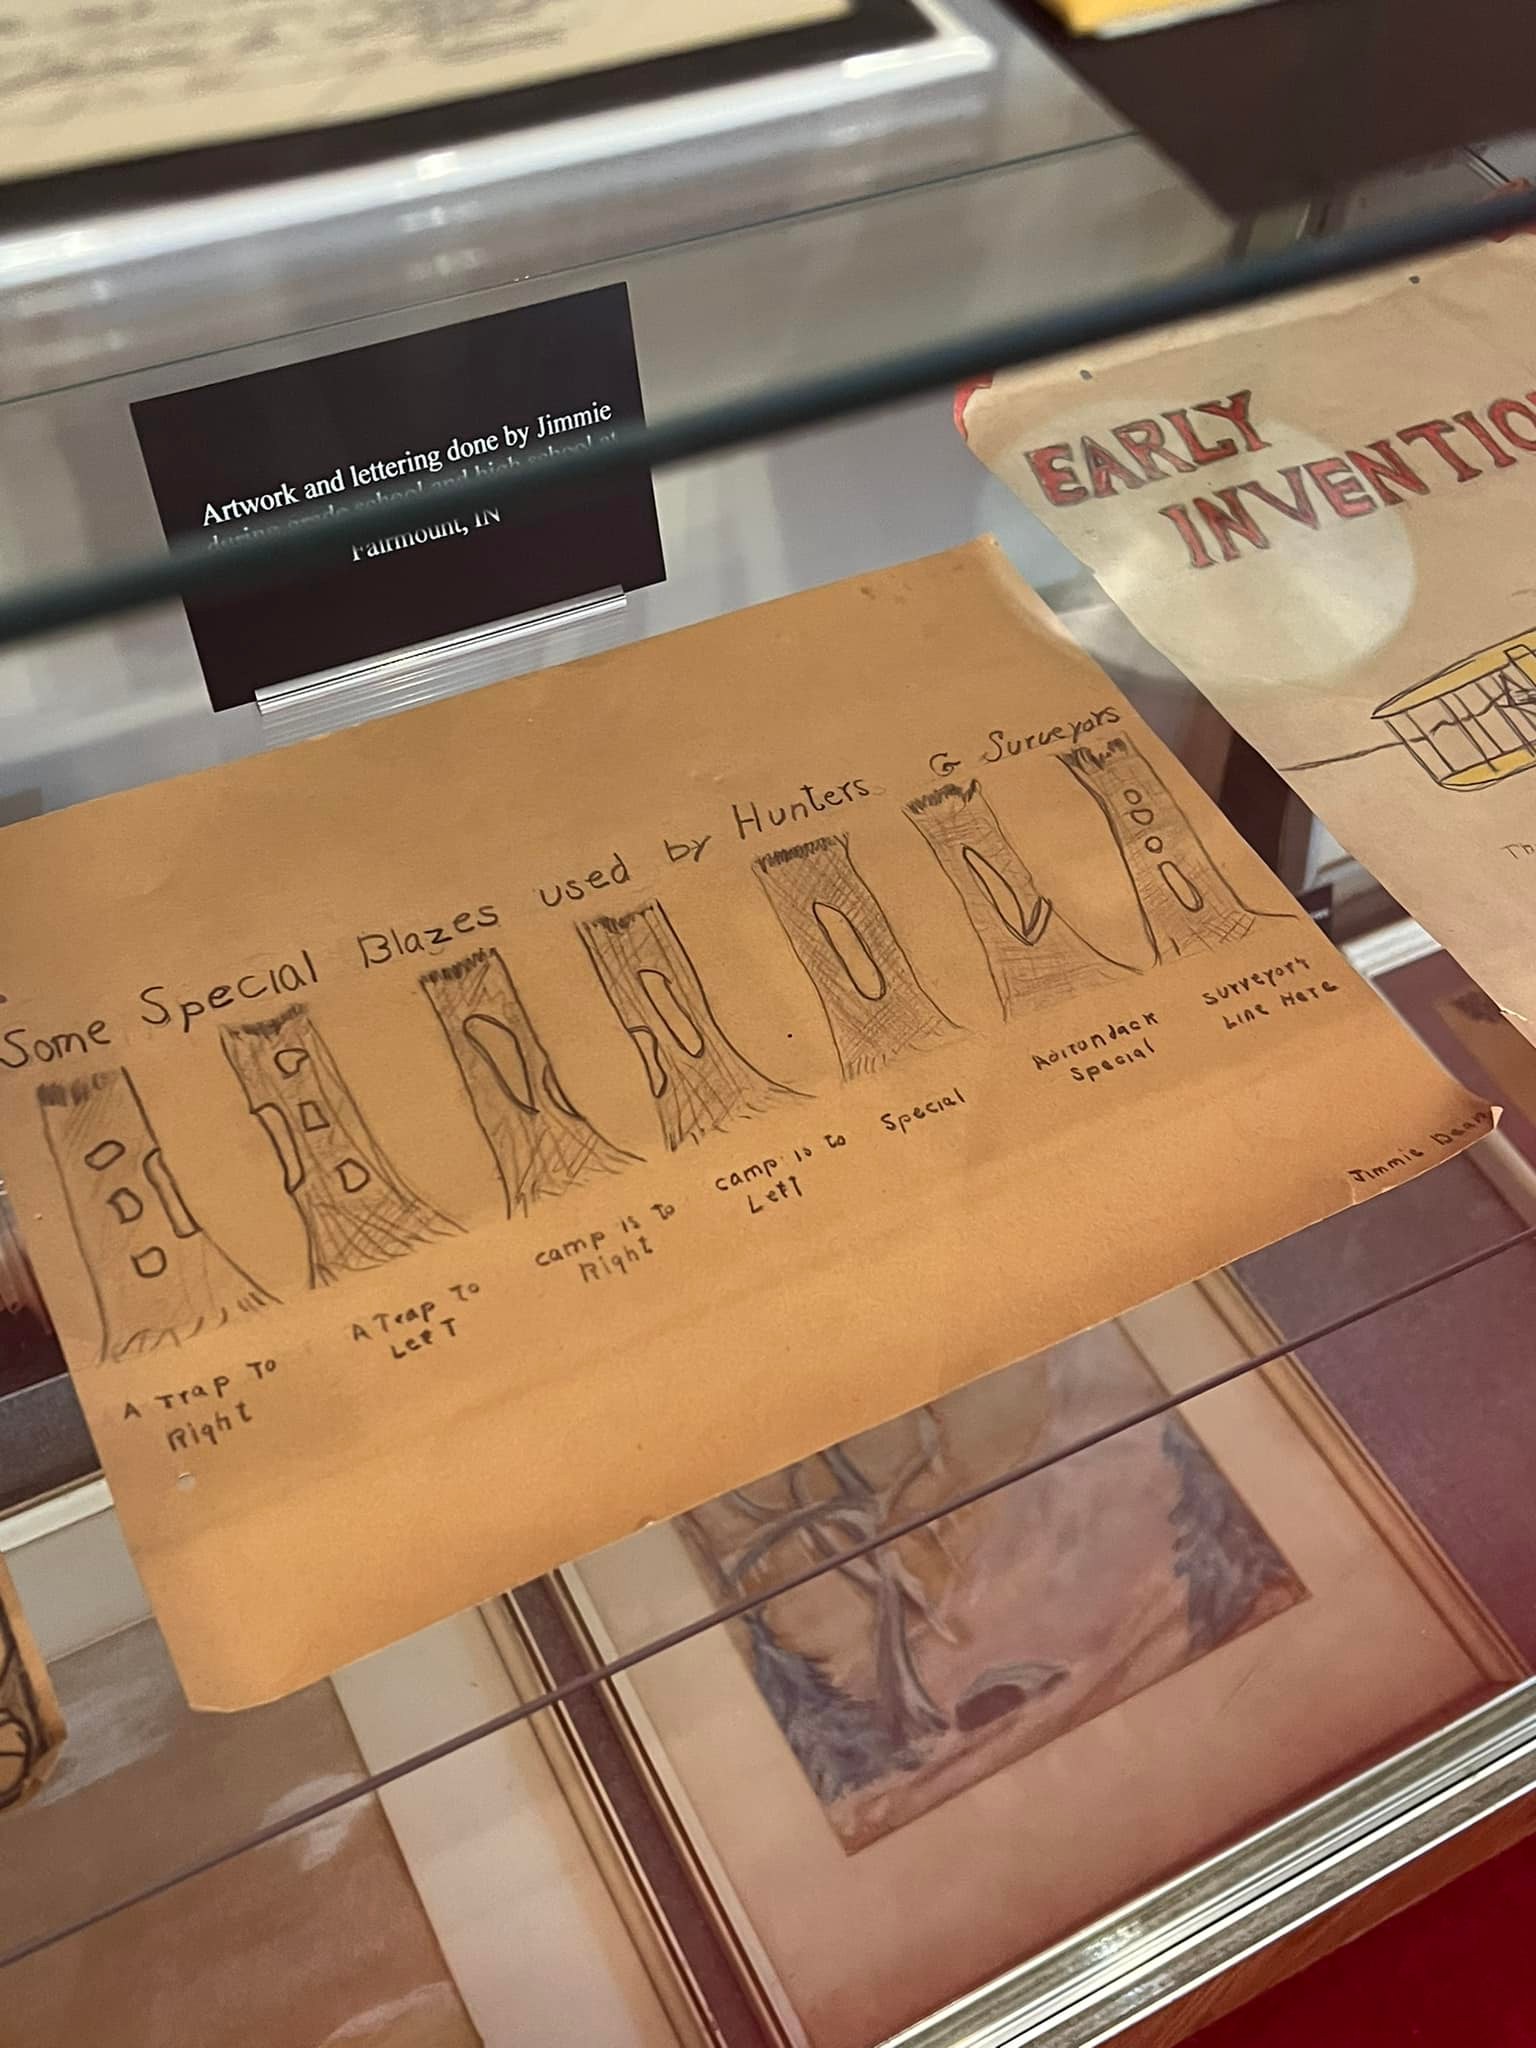 Artwork and lettering done by Jimmie
during grade school and high school at
Fairmount, IN
EARLY
Some Special Blazes used by Hunters & Surveyors
A Trap To
Right
A Trap To
Left
camp is to
Right
camp is to
Left
Special
Adirondack
Special
surveyor's
Line Here
Jimmie Dean